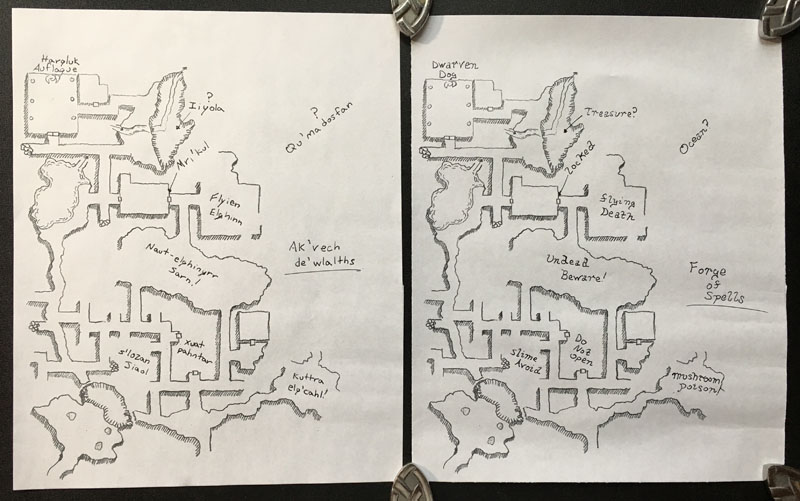 Harpluk
Auflaque
?
Iiyola
?
Qu'ma dosfan
Mri'kul
Flyien
Elghinn
Naut-elghinyrr
Sarn!
Ak'vech
de'wlalths
xuat
pahntar
s'lozan
Jiaol
Kuttra
elg'cahl!
Dwarven
Dog
Treasure?
Ocean?
Locked
flying
Death
Undead
Beware!
Forge
of
Spells
Do
Not
Open
slime
Avoid
mushroom
poison